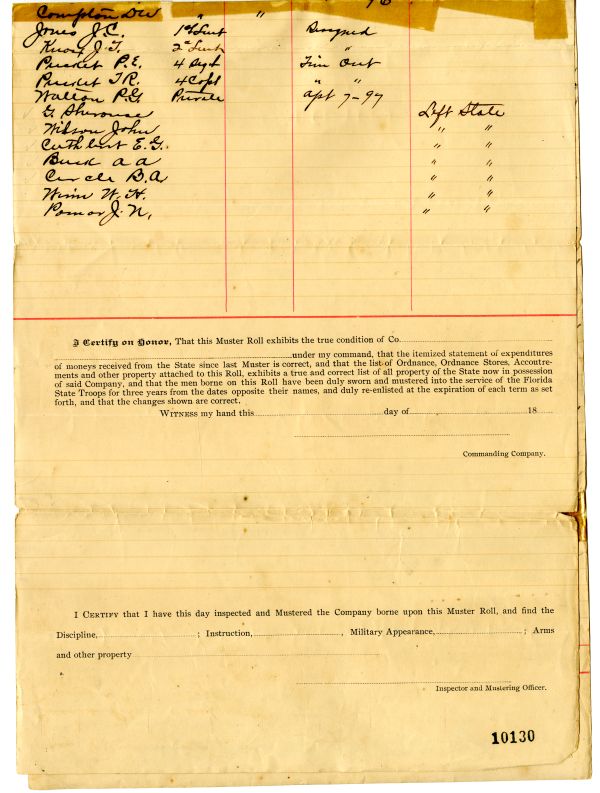 Compton DW " "
Jones J.C. 1st Lieut Resigned
Knox J.T. 2d Lieut "
Pucket P.E. 4 Sgt Time Out
Pucket T.R. 4 Copl " "
Walton P.G. Private Apt 7-97
G. Left State
Wilson John " "
Cuthbert E.G. " "
Buck A A " "
Circle B.A " "
Winn W.H. " "
J.N. " "
I Certify on Honor, That this Muster Roll exhibits the true condition of Co.
under my command, that the itemized statement of expenditures
of moneys received from the State since last Muster is correct, and that the list of Ordnance, Ordnance Stores, Accoutre-
ments and other property attached to this Roll, exhibits a true and correct list of all property of the State now in possession
of said Company, and that the men borne on this Roll have been duly sworn and mustered into the service of the Florida
State Troops for three years from the dates opposite their names, and duly re-enlisted at the expiration of each term as set
forth, and that the changes shown are correct.
WITNESS my hand this day of 18
Commanding Company.
I CERTIFY that I have this day inspected and Mustered the Company borne upon this Muster Roll, and find the
Discipline, ; Instruction, , Military Appearance, ; Arms
and other property
Inspector and Mustering Officer.
10130